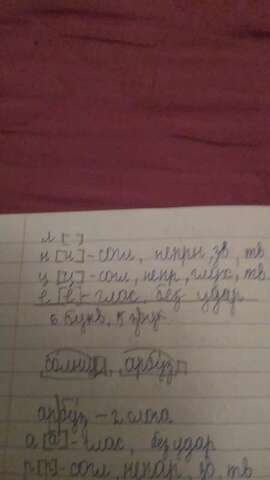 л [ ]
н [н] - согл, непрн, зв, тв
ц [ц] - согл, непр, глух, тв
е [е] - глас, без удар
6 букв, 5 звук
арбуз
арбуз - 2 слога
а [а] - глас, без удар
р [р] - согл, непар, зв, тв